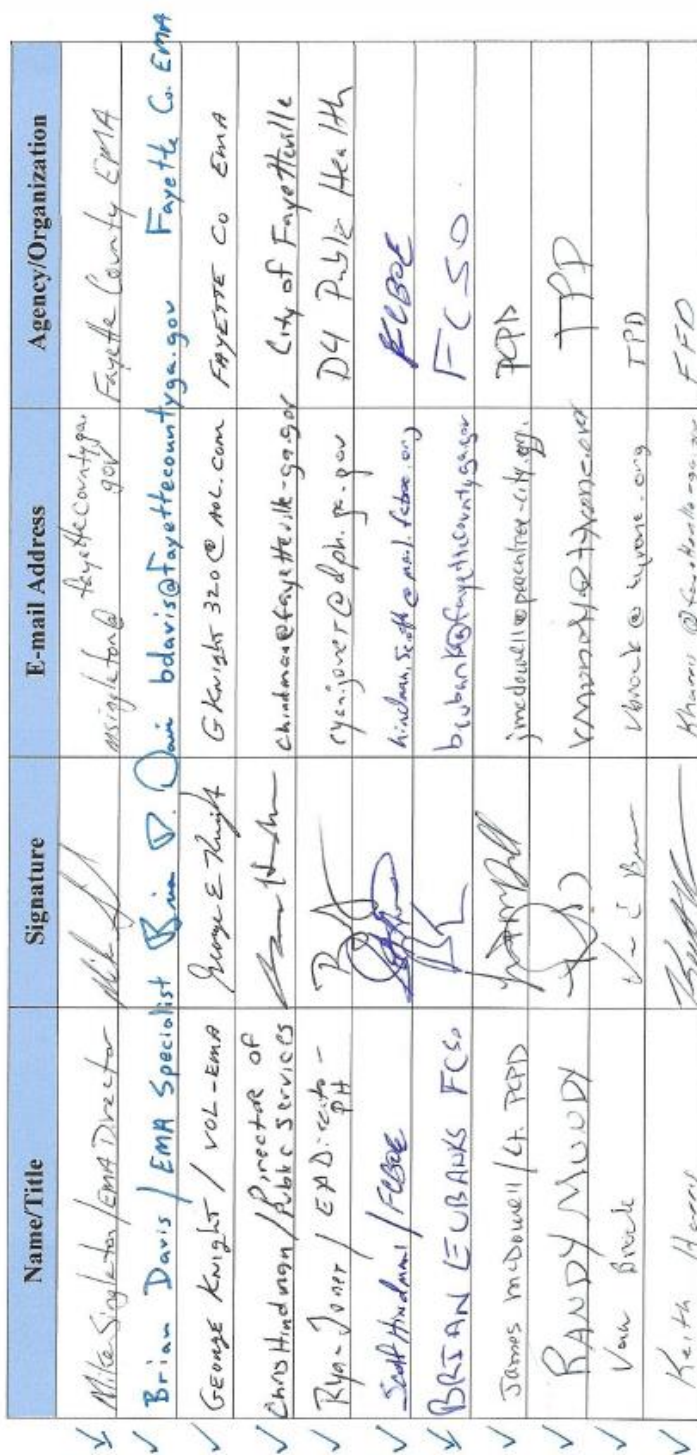 Name/Title Signature E-mail Address Agency/Organization
Mike Singleton/EMA Director Mike msingleton@fayettecountyga.gov Fayette County EMA
Brian Davis / EMA Specialist Brian D. Davis bdavis@fayettecountyga.gov Fayette Co. EMA
George Knight / VOL-EMA George E Knight GKnight320@AOL.com FAYETTE CO EMA
Chris Hindman/Director of Public Services chindman@fayetteville-ga.gov City of Fayetteville
Ryan Jones / EP Director - PH @dph.ga.gov D4 Public Health
Scott Hindman / FCBOE hindman.scott@mail.fcboe.org FCBOE
BRIAN EUBANKS FCSO beubanks@fayettecountyga.gov FCSO.
James McDowell / Lt. PCPD jmcdowell@peachtree-city.org PCPD
RANDY MUNDY @tyrone.org TPD
Brock vbrock@tyrone.org TPD
Keith FFD